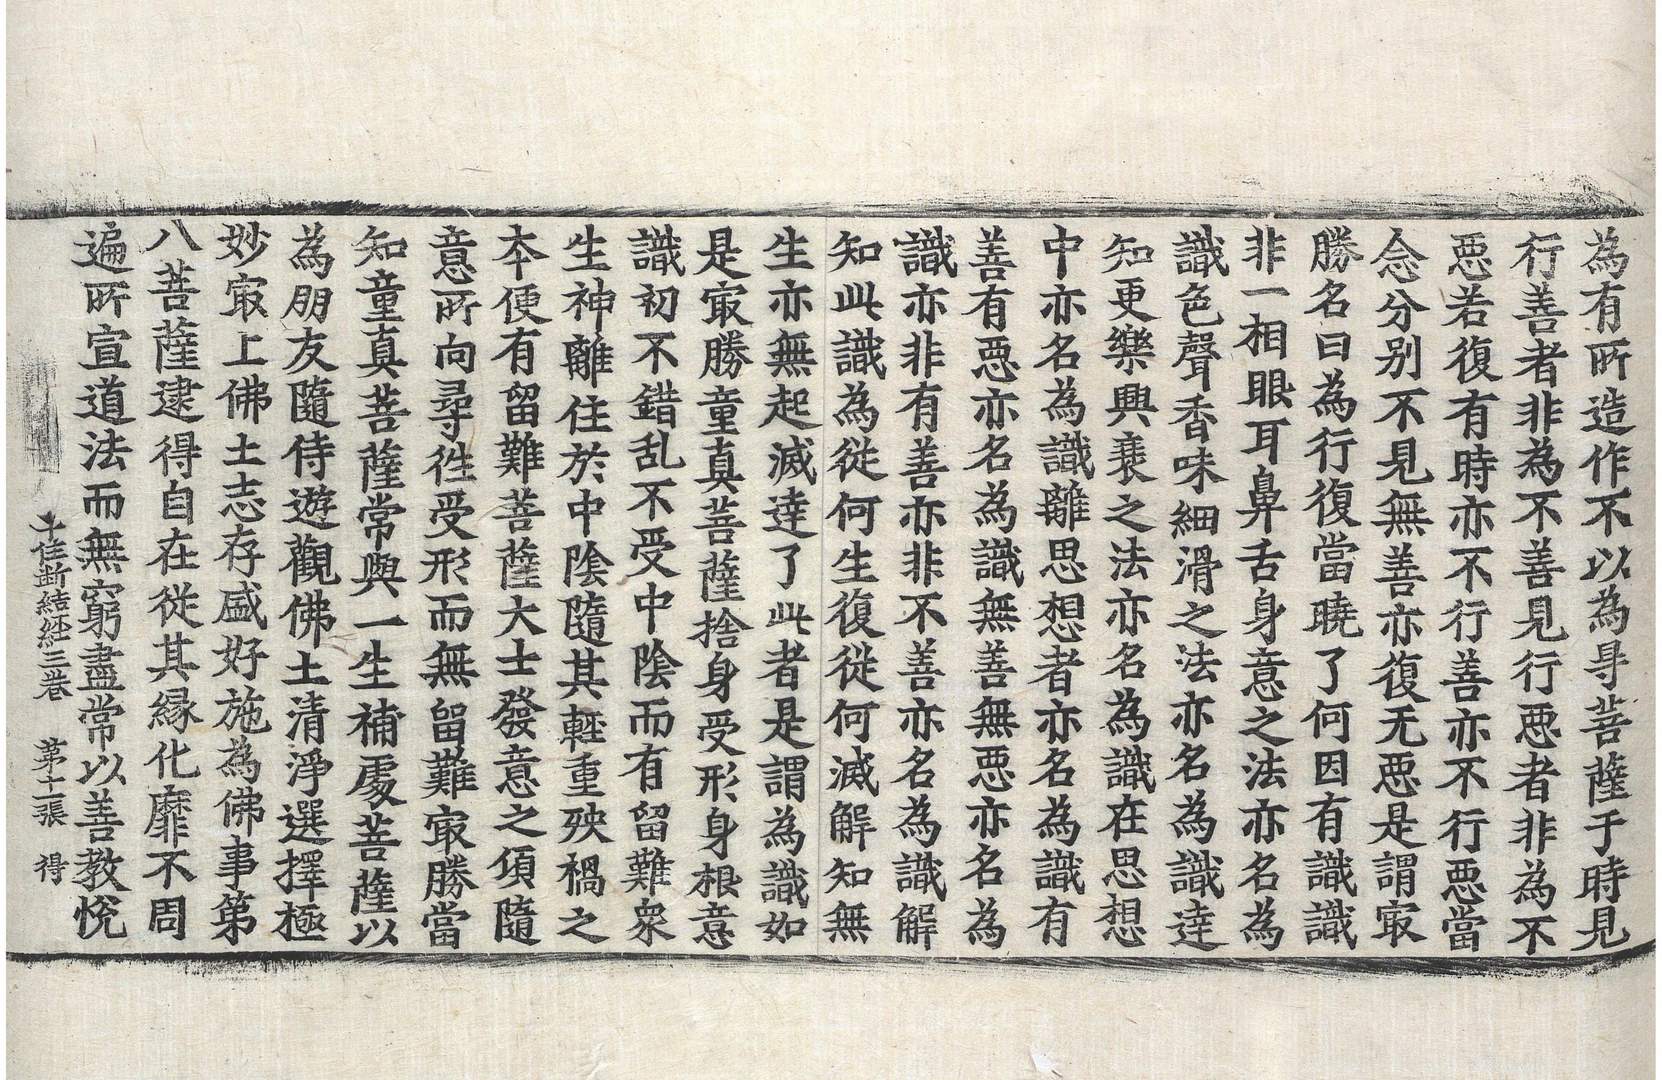 為有所造作不以為㝵菩薩于時見
行善者非為不善見行惡者非為不
惡若復有時亦不行善亦不行惡當
念分別不見無善亦復无惡是謂㝡
勝名曰為行復當曉了何因有識識
非一相眼耳鼻舌身意之法亦名為
識色聲香味細滑之法亦名為識達
知更樂興衰之法亦名為識在思想
中亦名為識離思想者亦名為識有
善有惡亦名為識無善無惡亦名為
識亦非有善亦非不善亦名為識解
知此識為從何生復從何滅解知無
生亦無起滅達了此者是謂為識如
是㝡勝童真菩薩捨身受形身根意
識初不錯乱不受中陰而有留難衆
生神離住於中陰隨其輕重殃禍之
本便有留難菩薩大士發意之頃隨
意所向尋徃受形而無留難㝡勝當
知童真菩薩常與一生補處菩薩以
為朋友隨侍遊觀佛土清淨選擇極
妙㝡上佛土志存盛好施為佛事第
八菩薩逮得自在從其緣化靡不周
遍所宣道法而無窮盡常以善教恱
十住断結経三巻 第十一張 得